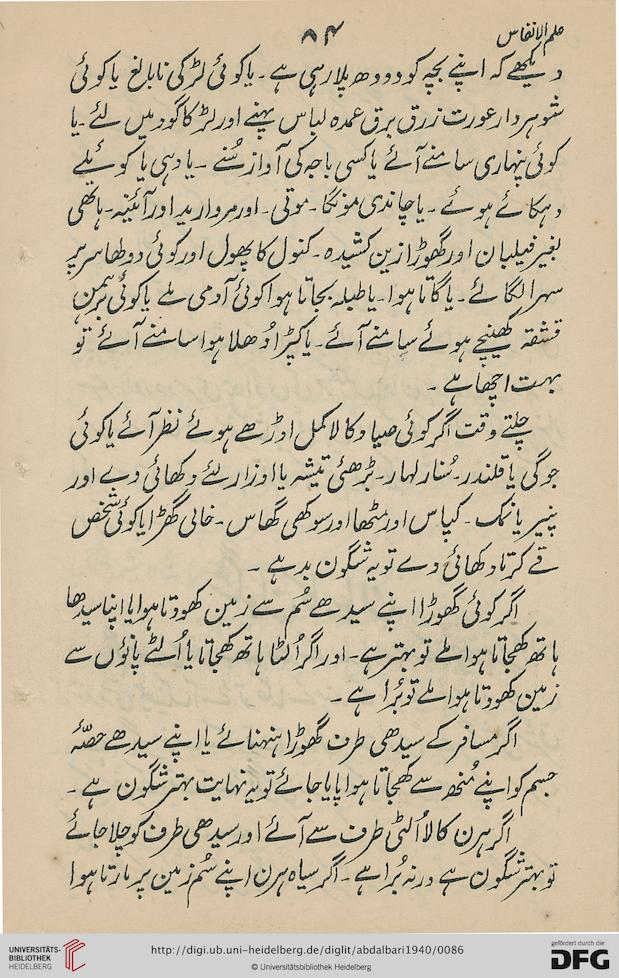 علم الانفاس
۸۴
دیکھے کہ اپنے بچہ کو دودھ پلا رہی ہے۔ یا کوئی لڑکی نابالغ یا کوئی
شوہردار عورت زرق برق عمدہ لباس پہنے اور لڑکا گود میں لئے۔ یا
کوئی پنہاری سامنے آئے یا کسی باجہ کی آواز سُنے ۔ یا دہی یا کوئیلے
دہکائے ہوئے ۔ یا چاندی مونگا۔ موتی۔ اور مروارید اور آئینہ۔ ہاتھی
بغیر فیلبان اور گھوڑا زین کشیدہ ۔ کنول کا پھول اور کوئی دوطھا سر پر
سہرا لگائے ۔ یا گاتا ہوا۔ یا طبلہ بجاتا ہوا کوئی آدمی ملے یا کوئی برہمن
قشقہ کھینچے ہوئے سامنے آئے۔ یا کپڑا دُھلا ہوا سامنے آئے تو
بہت اچھا ہے ۔
چلتے وقت اگر کوئی صیاد کالا کمل اوڑھے ہوئے نظر آئے یا کوئی
جوگی یا قلندر۔ سُنار لہار۔ بڑھئی تیشہ یا اوزار لئے دکھائی دے اور
پنیر یا نمک ۔ کپاس اور مٹھا اور سوکھی گھاس ۔ خالی گھڑا یا کوئی شخص
قے کرتا دکھائی دے تو یہ شگون بد ہے ۔
اگر کوئی گھوڑا اپنے سیدھے سُم سے زمین کھودتا ہوا یا اپنا سیدھا
ہاتھ کھجاتا ہوا ملے تو بہتر ہے۔ اور اگر اُلٹا ہاتھ کھجاتا یا اُلٹے پاؤں سے
زمین کھودتا ہوا ملے تو بُرا ہے ۔
اگر مسافر کے سیدھی طرف گھوڑا ہنہنائے یا اپنے سیدھے حصّہ
جسم کو اپنے مُنھ سے کھجاتا ہوا پایا جائے تو یہ نہایت بہتر شگون ہے ۔
اگر ہرن کالا اُلٹی طرف سے آئے اور سیدھی طرف کو چلا جائے
تو بہتر شگون ہے ورنہ بُرا ہے ۔ اگر سیاہ ہرن اپنے سُم زمین پر مارتا ہوا
UNIVERSITÄTS-
BIBLIOTHEK
HEIDELBERG
http://digi.ub.uni-heidelberg.de/diglit/abdalbari1940/0086
© Universitätsbibliothek Heidelberg
gefördert durch die
DFG